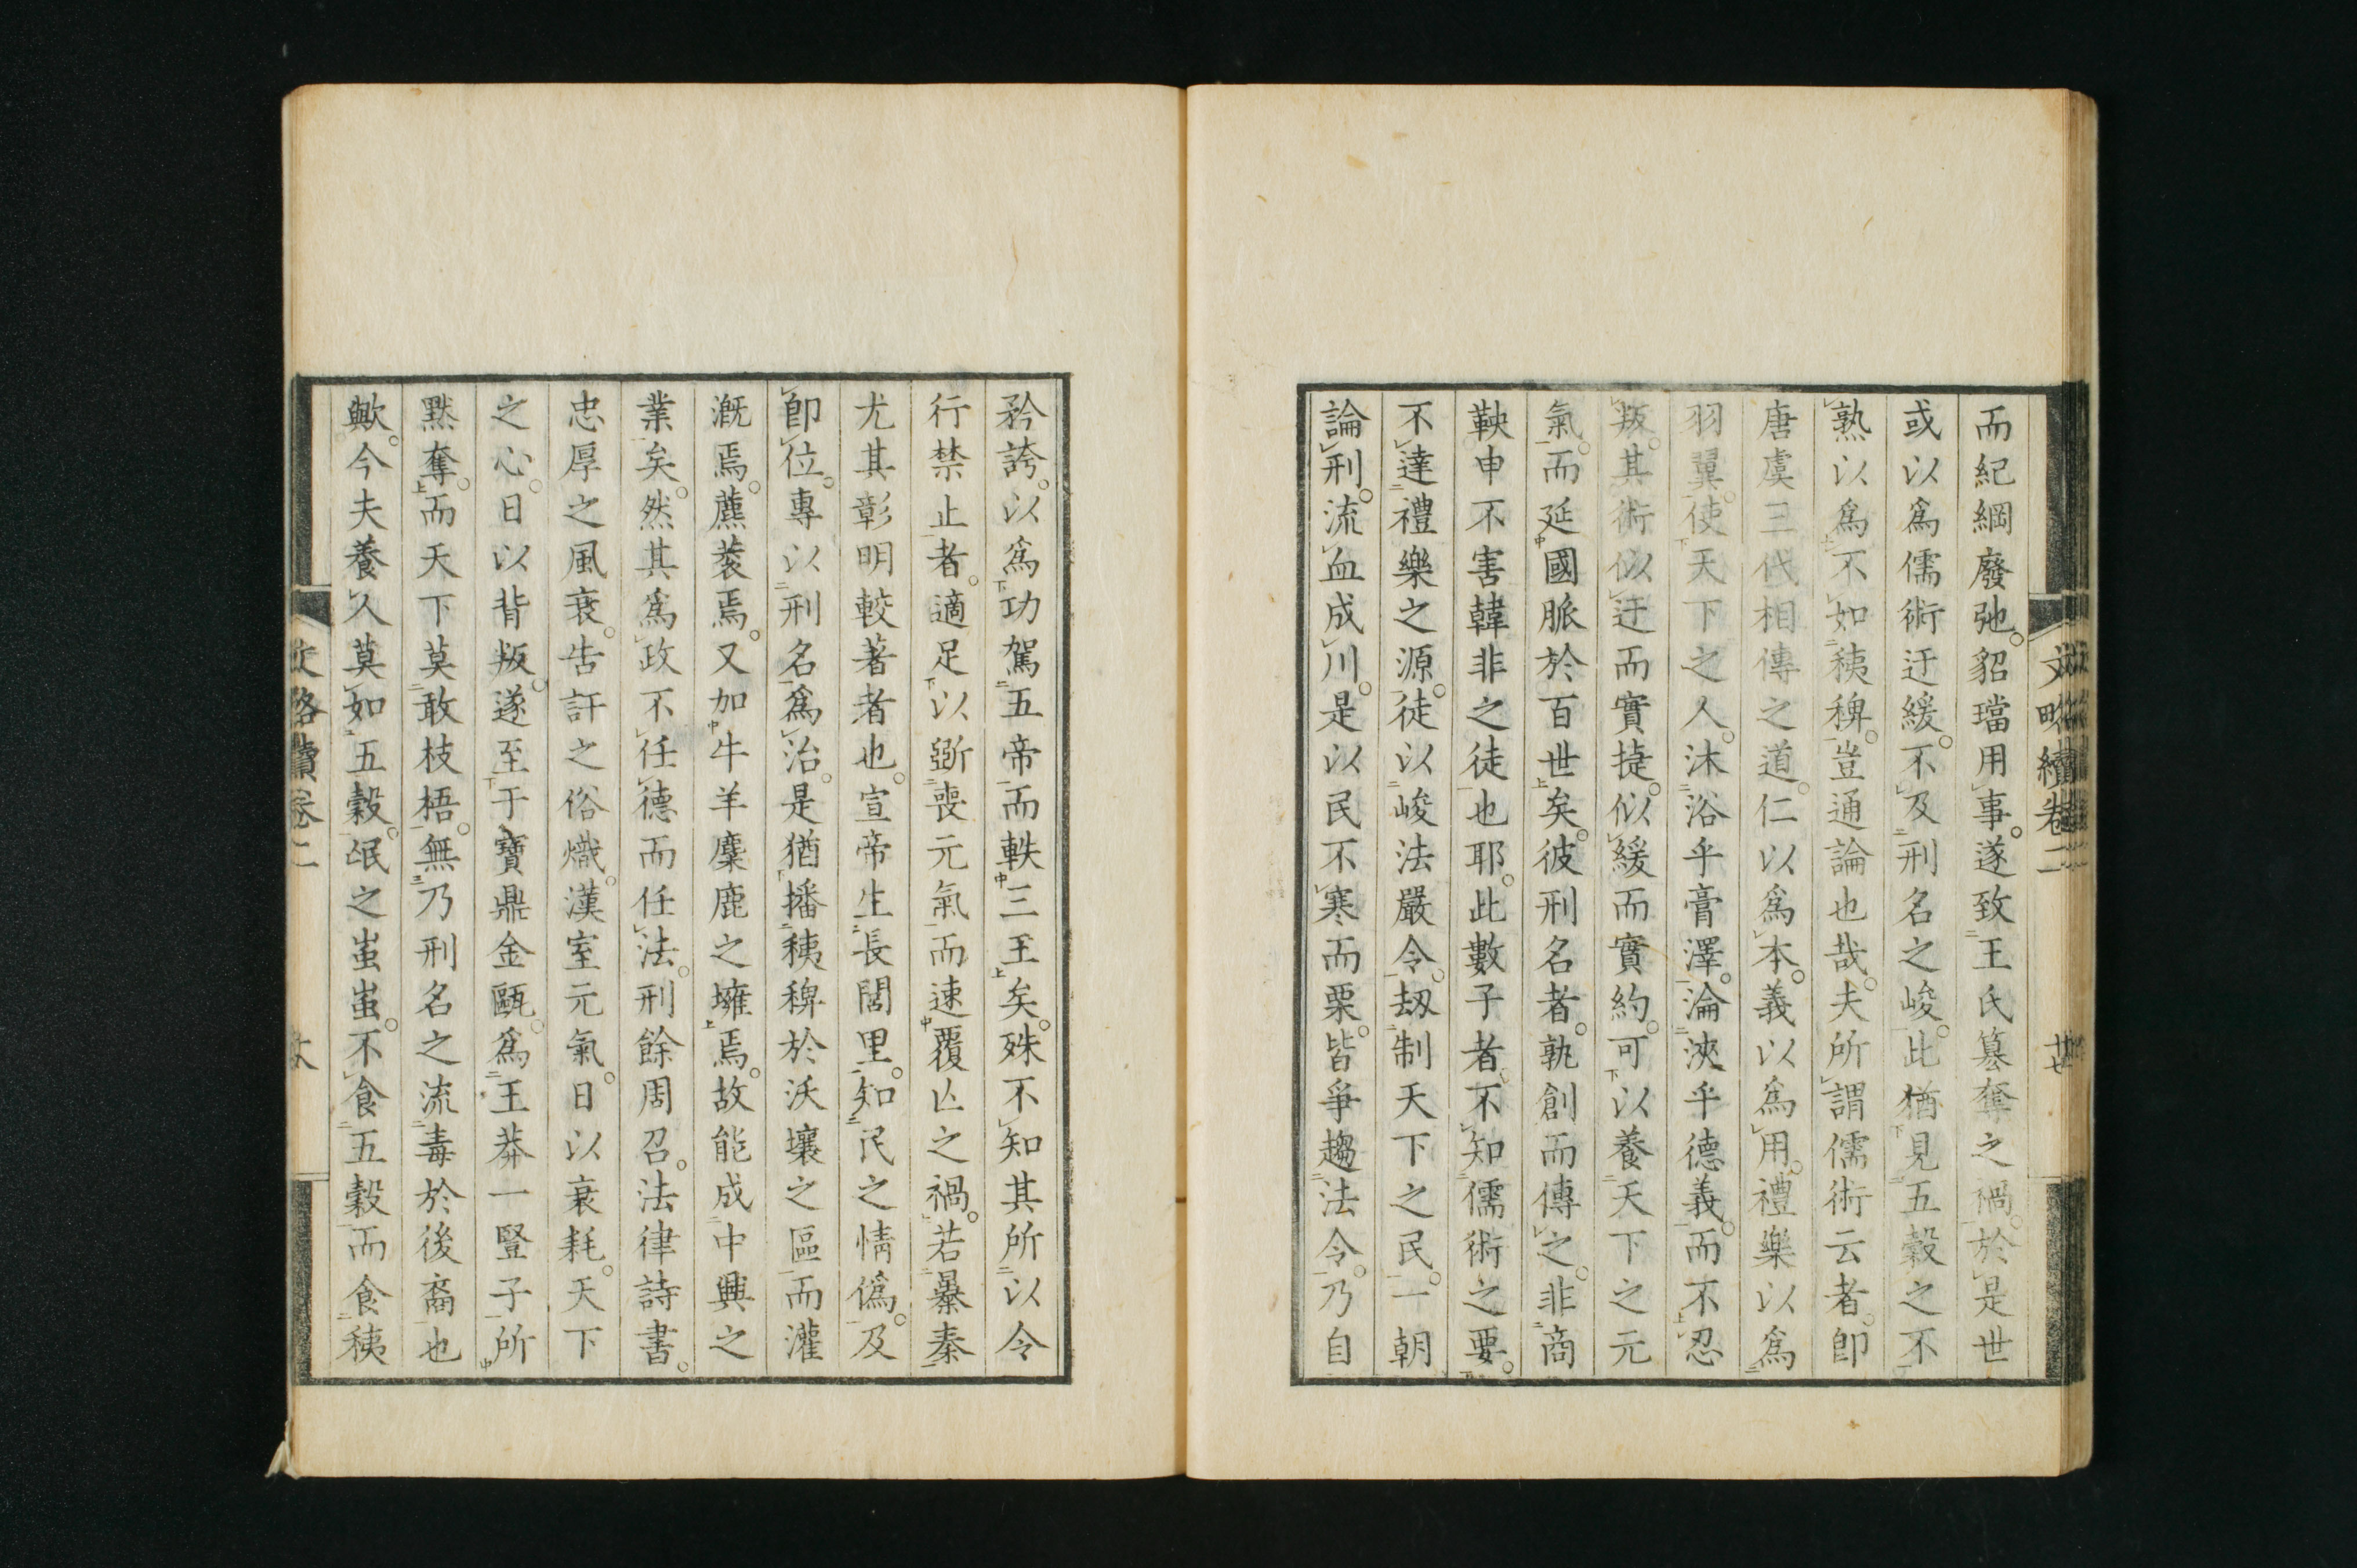 文略續卷二
廿七
而紀綱廢弛。貂璫用事。遂致王氏簒奪之禍。於是世
或以爲儒術迂緩。不及刑名之峻。此猶見五穀之不
熟以爲不如稊稗。豈通論也哉。夫所謂儒術云者。卽
唐虞三代相傳之道。仁以爲本。義以爲用。禮樂以爲
羽翼。使天下之人。沐浴乎膏澤。淪浹乎德義。而不忍
叛。其術似迂而實捷。似緩而實約。可以養天下之元
氣。而延國脈於百世矣。彼刑名者。孰創而傳之。非商
鞅申不害韓非之徒也耶。此數子者。不知儒術之要。
不達禮樂之源。徒以峻法嚴令。刼制天下之民。一朝
論刑。流血成川。是以民不寒而栗。皆爭趨法令。乃自
矜誇。以爲功駕五帝而軼三王矣。殊不知其所以令
行禁止者。適足以斲喪元氣而速覆亾之禍。若暴秦
尤其彰明較著者也。宣帝生長閭里。知民之情僞。及
卽位。專以刑名爲治。是猶播稊稗於沃壤之區而灌
漑焉。藨蓘焉。又加牛羊麋鹿之壅焉。故能成中興之
業矣。然其爲政不任德而任法。刑餘周召。法律詩書。
忠厚之風衰。告訐之俗熾。漢室元氣。日以衰耗。天下
之心。日以背叛。遂至于寶鼎金甌。爲王莽一豎子所
黙奪。而天下莫敢枝梧。無乃刑名之流毒於後裔也
歟。今夫養人莫如五穀。氓之蚩蚩。不食五穀而食稊
文略續卷二